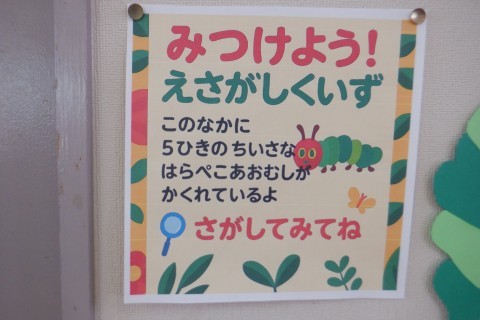 みつけよう!
えさがしくいず
このなかに
5ひきのちいさな
はらぺこあおむしが
かくれているよ
さがしてみてね